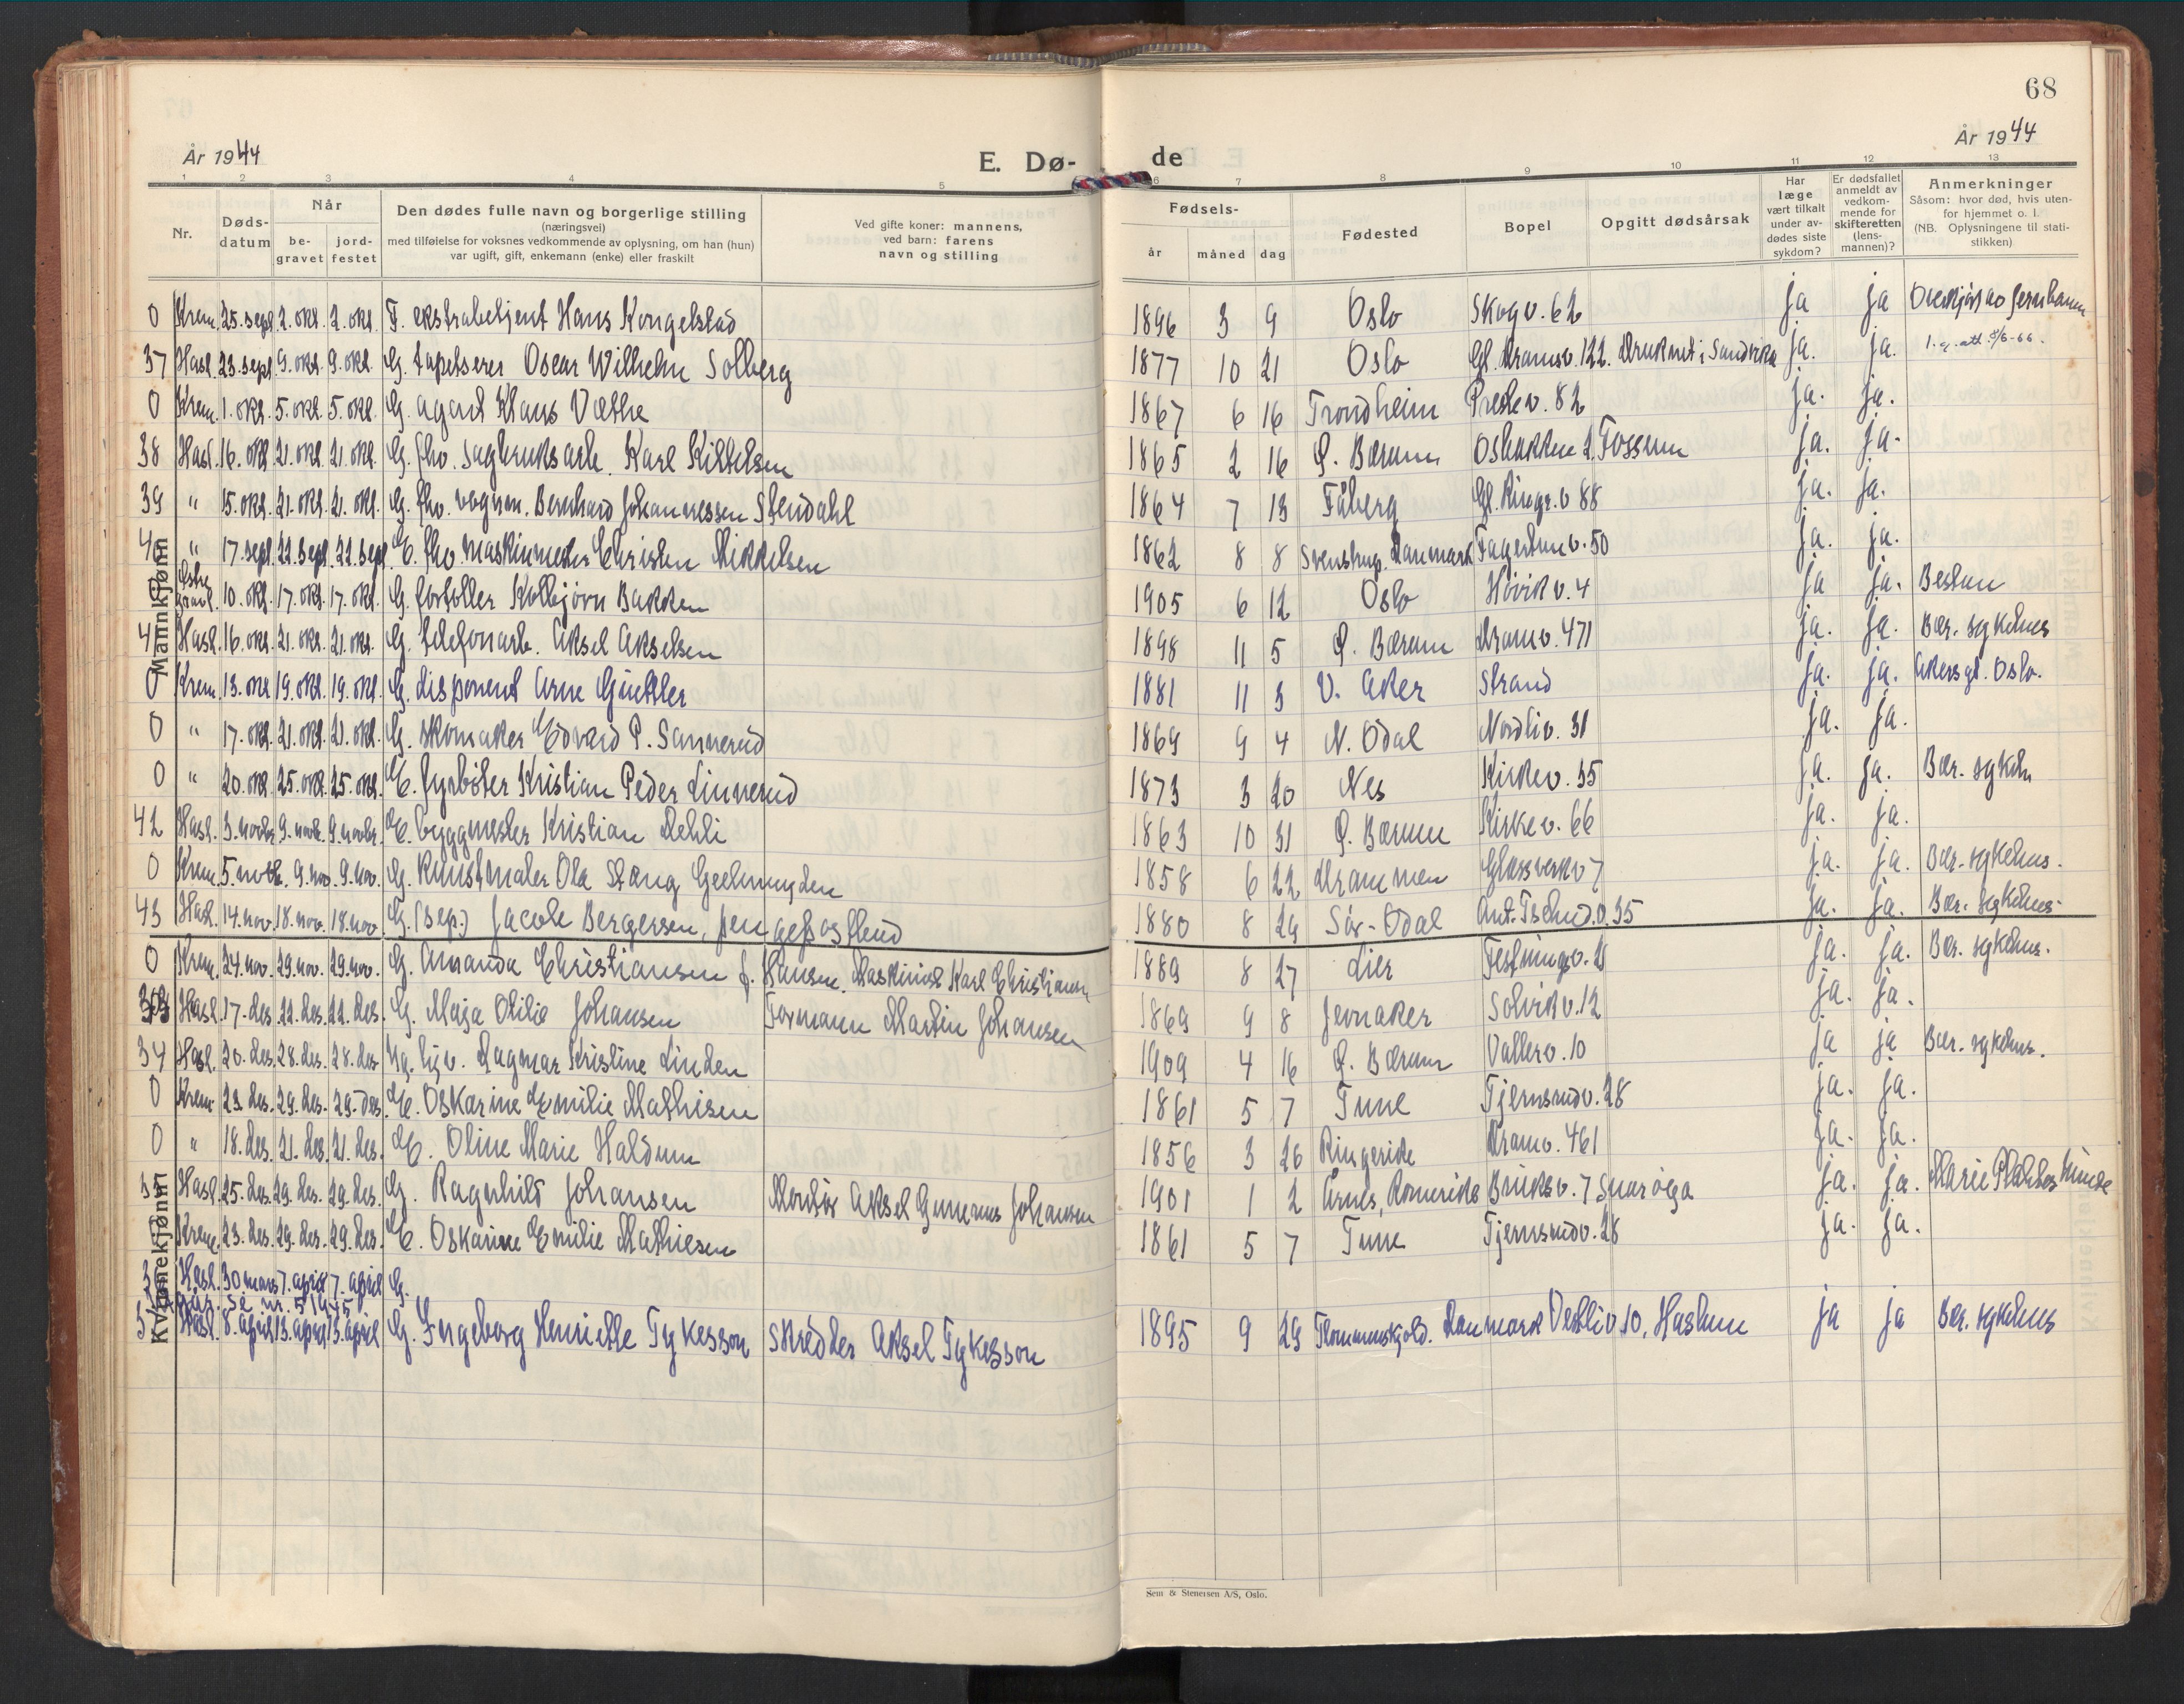 68
År 1944
År 1944
E. Dø-
de
1 2 3 4 5 6 7 8 9 10 11 12 13
Nr.
Døds-
datum
Når
be-
gravet
jord-
festet
Den dødes fulle navn og borgerlige stilling
(næringsvei)
med tilføielse for voksnes vedkommende av oplysning, om han (hun)
var ugift, gift, enkemann (enke) eller fraskilt
Ved gifte koner: mannens,
ved barn: farens
navn og stilling
Fødsels-
år måned dag
Fødested
Bopel
Opgitt dødsårsak
Har
læge
vært tilkalt
under av-
dødes siste
sykdom?
Er dødsfallet
anmeldt av
vedkom-
mende for
skifteretten
(lens-
mannen)?
Anmerkninger
Såsom: hvor død, hvis uten-
for hjemmet o. l.
(NB. Oplysningene til stati-
stikken)
Mannkjønn
0 Krem. 25. sept. 2. okt. 2. okt. F. ekstrabetjent Hans Kongelstad 1896 3 9 Oslo Skogv. 62 ja ja Overkjørt av jernbanen
37 Hasl. 23. sept. 9. okt. 9. okt. G. tapetserer Oscar Wilhelm Solberg 1877 10 21 Oslo Gl. Dramsv. 122. Druknet i Sandvika ja. ja.
0 Krem. 1. okt. 5. okt. 5. okt. G. agent Klaus Væthe 1867 6 16 Trondheim Prestev. 82 ja. ja.
38 Hasl. 16. okt. 21. okt. 21. okt. G. fhv. sagbruksarb. Karl Kittelsen 1865 2 16 Ø. Bærum Osbakken 2. Fossum ja. ja.
39 " 15. okt. 21. okt. 21. okt. G. fhv. vognm. Bernhard Johannessen Stendahl 1864 7 13 Fåberg Gl. Ringr. v 88 ja. ja.
40 " 17. sept. 22. sept. 22. sept. E. fhv maskinmester Christen Mikkelsen 1862 8 8 Svenstrup. Danmark Fagertunv. 50 ja. ja.
0 Østre gravl. 10. okt. 17. okt. 17. okt. G. fortoller Kolbjørn Bakken 1905 6 12 Oslo Høvik v. 4 ja ja. Bestun
41 Hasl. 16. okt. 21. okt. 21. okt. G. telefonarb. Aksel Akselsen 1898 11 5 Ø. Bærum Dramv. 471 ja. ja. Bær. sykehus
0 Krem. 13. okt 19. okt. 19. okt G. disponent Arne Güettler 1881 11 3 V. Aker Strand ja. ja. Akersgt. Oslo.
0 " 17. okt. 21. okt. 21. okt. G. skomaker Edvard P. Sannerud 1869 9 4 N. Odal Nordliv. 31 ja. ja.
0 " 20. okt. 25. okt. 25. okt. E. fyrbøter Kristian Peder Linnerud 1873 3 20 Nes Kirkev. 35 ja. ja. Bær. sykeh
42 Hasl. 3. novbr. 9. novb. 9. novbr. E. byggmester Kristian Dehli 1863 10 31 Ø. Bærum Kirkev. 66 ja. ja.
0 Krem. 5. novb. 9. nov. 9. nov. G. kunstmaler Ola Stang Geelmuyden 1858 6 22 Drammen Glassverkv 7 ja. ja. Bær. sykehus.
43 Hasl. 14. nov. 18. nov. 18. nov. G. (sep.) Jacob Bergersen, 1880 8 29 Sør-Odal Ant. Tschud. v. 35 ja. ja. Bær. sykehus.
Kvinnekjønn
0 Krem. 24. nov. 29. nov. 29. nov. G. Amanda Christiansen f. Hansen. Maskinist Karl Christiansen 1889 8 27 Lier Festningv. 2 ja. ja. Bær. sykehus.
33 Hasl. 17. des. 22. des. 22. des. G. Maja Otilie Johansen Formann Martin Johansen 1869 9 8 Jevnaker Solvikv. 12 ja. ja.
34 Hasl. 20. des. 28. des. 28. des Ug. tjv. Dagmar Kristine Linden 1909 4 16 Ø. Bærum Vallerv. 10 ja ja Bær. sykehus.
0 Krem. 23. des. 29. des. 29. des. E. Oskarine Emilie Mathisen 1861 5 7 Tune Tjernsrudv. 28 ja. ja.
0 " 18. des. 21. des. 21. des. E. Oline Marie Haldum 1856 3 26 Ringerike Dramv. 461 ja. ja.
Hasl. 25. des. 29. des. 29. des. G. Ragnhild Johansen Montør Aksel Gunerius Johansen 1901 1 2 Årnes, Romerike Bruksv. 7 Snarøya ja. ja. Marie Plathes Minde
Krem. 23. des. 29. des. 29. des. E. Oskarine Emilie Mathiesen 1861 5 7 Tune Tjernsrudv. 28 ja. ja.
Hasl. 30 mars 7. april 7. april G.
se nr. 5 1945
Hasl. 8. april 13. april 13. april G. Ingeborg Henriette Tykesson Skredder Aksel Tykesson 1895 9 29 Danmark Vestliv. 10, Haslum ja ja Bær. sykehus
Sem & Stenersen A/S, Oslo.